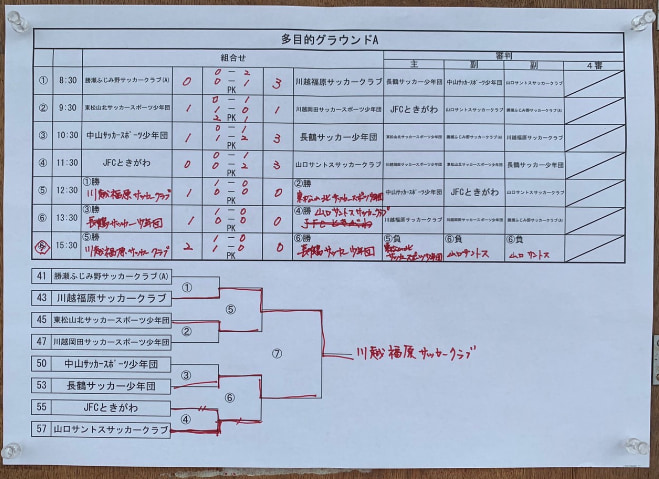 多目的グラウンドA
組合せ 審判
主 副 副 4審
① 8:30 勝瀬ふじみ野サッカークラブ(A) 0 0-2 0-1 PK 3 川越福原サッカークラブ 長鶴サッカー少年団 中山サッカースポーツ少年団 山口サントスサッカークラブ
② 9:30 東松山北サッカースポーツ少年団 1 0-1 1-0 2PK1 1 川越岡田サッカースポーツ少年団 JFCときがわ 山口サントスサッカークラブ 勝瀬ふじみ野サッカークラブ(A)
③ 10:30 中山サッカースポーツ少年団 1 0-1 1-2 PK 3 長鶴サッカー少年団 東松山北サッカースポーツ少年団 勝瀬ふじみ野サッカークラブ(A) 川越福原サッカークラブ
④ 11:30 JFCときがわ 0 0-1 0-2 PK 3 山口サントスサッカークラブ 川越福原サッカークラブ 東松山北サッカースポーツ少年団 長鶴サッカー少年団
⑤ 12:30 ①勝 川越福原サッカークラブ 1 1-0 0-0 PK 0 ②勝 東松山北サッカースポーツ少年団 中山サッカースポーツ少年団 JFCときがわ 山口サントスサッカークラブ
⑥ 13:30 ③勝 長鶴サッカー少年団 1 1-0 0-0 PK 0 ④勝 山口サントスサッカークラブ JFCときがわ 川越福原サッカークラブ 川越岡田サッカースポーツ少年団 勝瀬ふじみ野サッカークラブ(A)
⑦ 15:30 ⑤勝 川越福原サッカークラブ 2 1-0 1-0 PK 0 ⑥勝 長鶴サッカー少年団 ⑤負 東松山北サッカースポーツ少年団 ⑥負 山口サントス ⑥負 山口サントス
41 勝瀬ふじみ野サッカークラブ(A)
①
43 川越福原サッカークラブ
⑤
45 東松山北サッカースポーツ少年団
②
47 川越岡田サッカースポーツ少年団
⑦ 川越福原サッカークラブ
50 中山サッカースポーツ少年団
③
53 長鶴サッカー少年団
⑥
55 JFCときがわ
④
57 山口サントスサッカークラブ